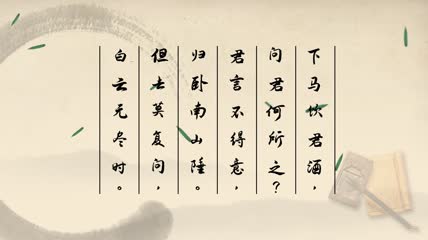 下马饮君酒，
问君何所之？
君言不得意，
归卧南山陲。
但去莫复问，
白云无尽时。